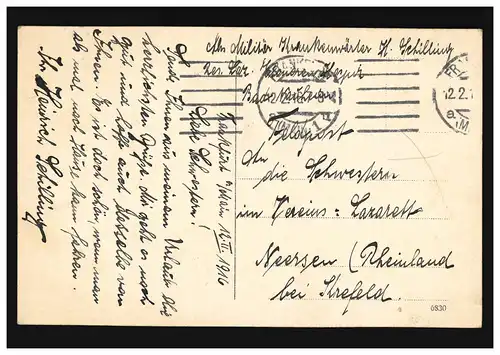 Abs Militär Krankenwärter H. Schilling
Res. Laz.
FRANKFURT
12.2.16
12.2.1
Feldpost
An
die Schwestern
im Vereins-Lazarett
Neersen (Rheinland
bei Krefeld.
Frankfurt a/Main 12.II.1916
Liebe Schwestern!
Sende Ihnen aus meinem Urlaub die
herzlichsten Grüße. Mir geht es noch
gut und hoffe auch dasselbe von
Ihnen. Es ist doch schön, wenn man
als mal nach Hause kann fahren.
Ihr Heinrich Schilling
0830